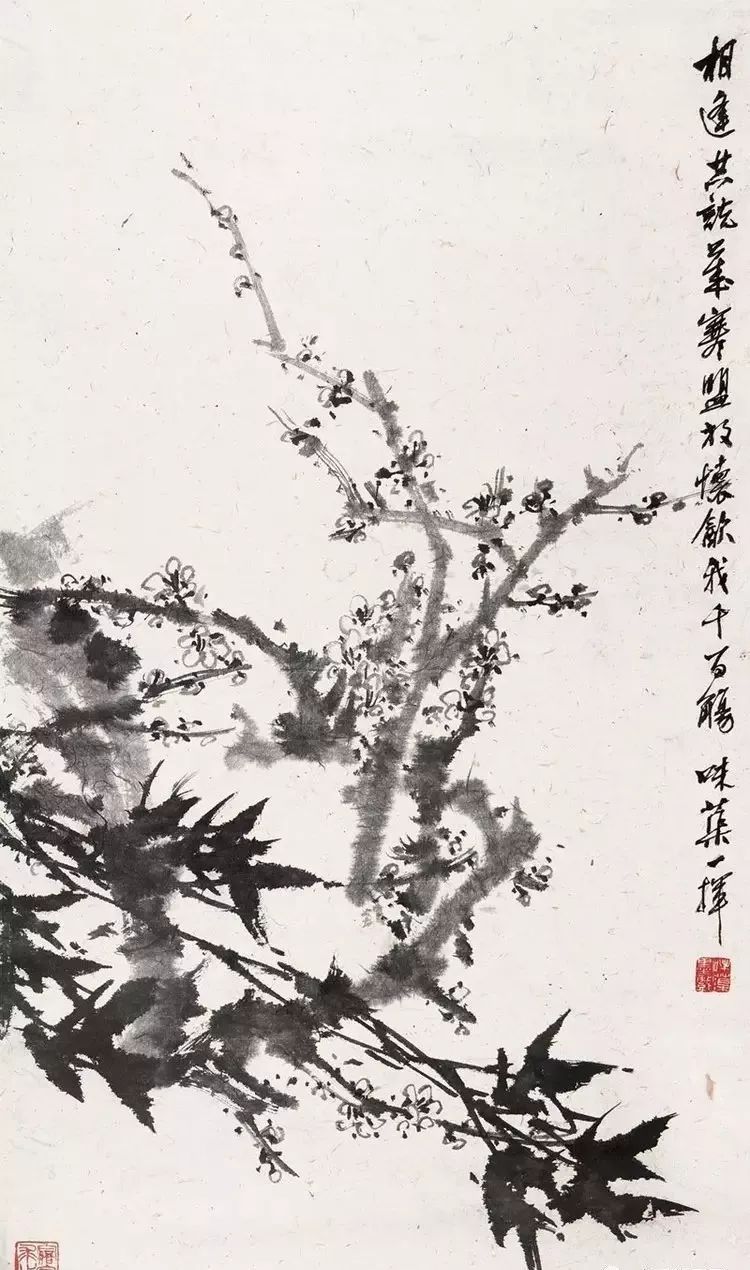 相逢共説歲寒盟放懷飲我千百觴 味蕖一揮